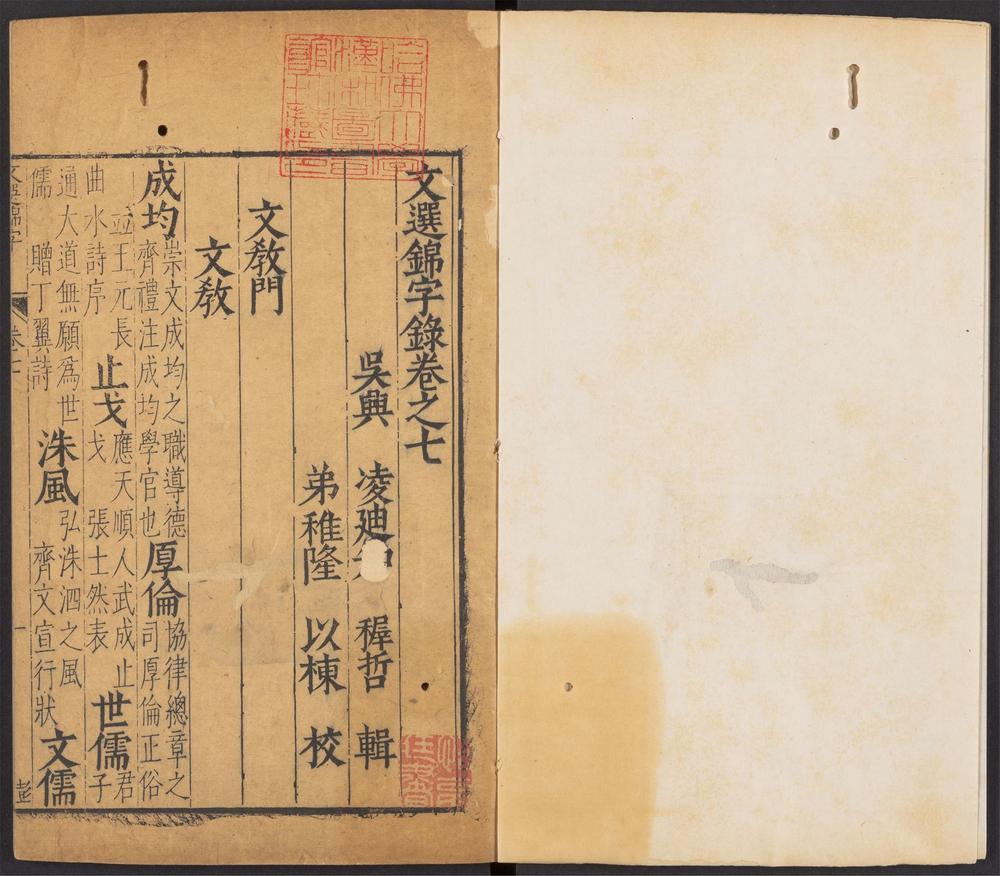 哈佛大學
漢和圖書
館珍藏印
文選錦字錄卷之七
吳興 凌迪知 穉哲 輯
弟稚隆 以棟 校
文敎門
文敎
成均 崇文成均之職導德齊禮注成均學官也 厚倫 協律總章之司厚倫正俗
並王元長曲水詩序 止戈 應天順人武成止戈 張士然表 世儒 君子
通大道無願爲世儒 贈丁翼詩 洙風 弘洙泗之風 齊文宣行狀 文儒
文選錦字 卷七 一